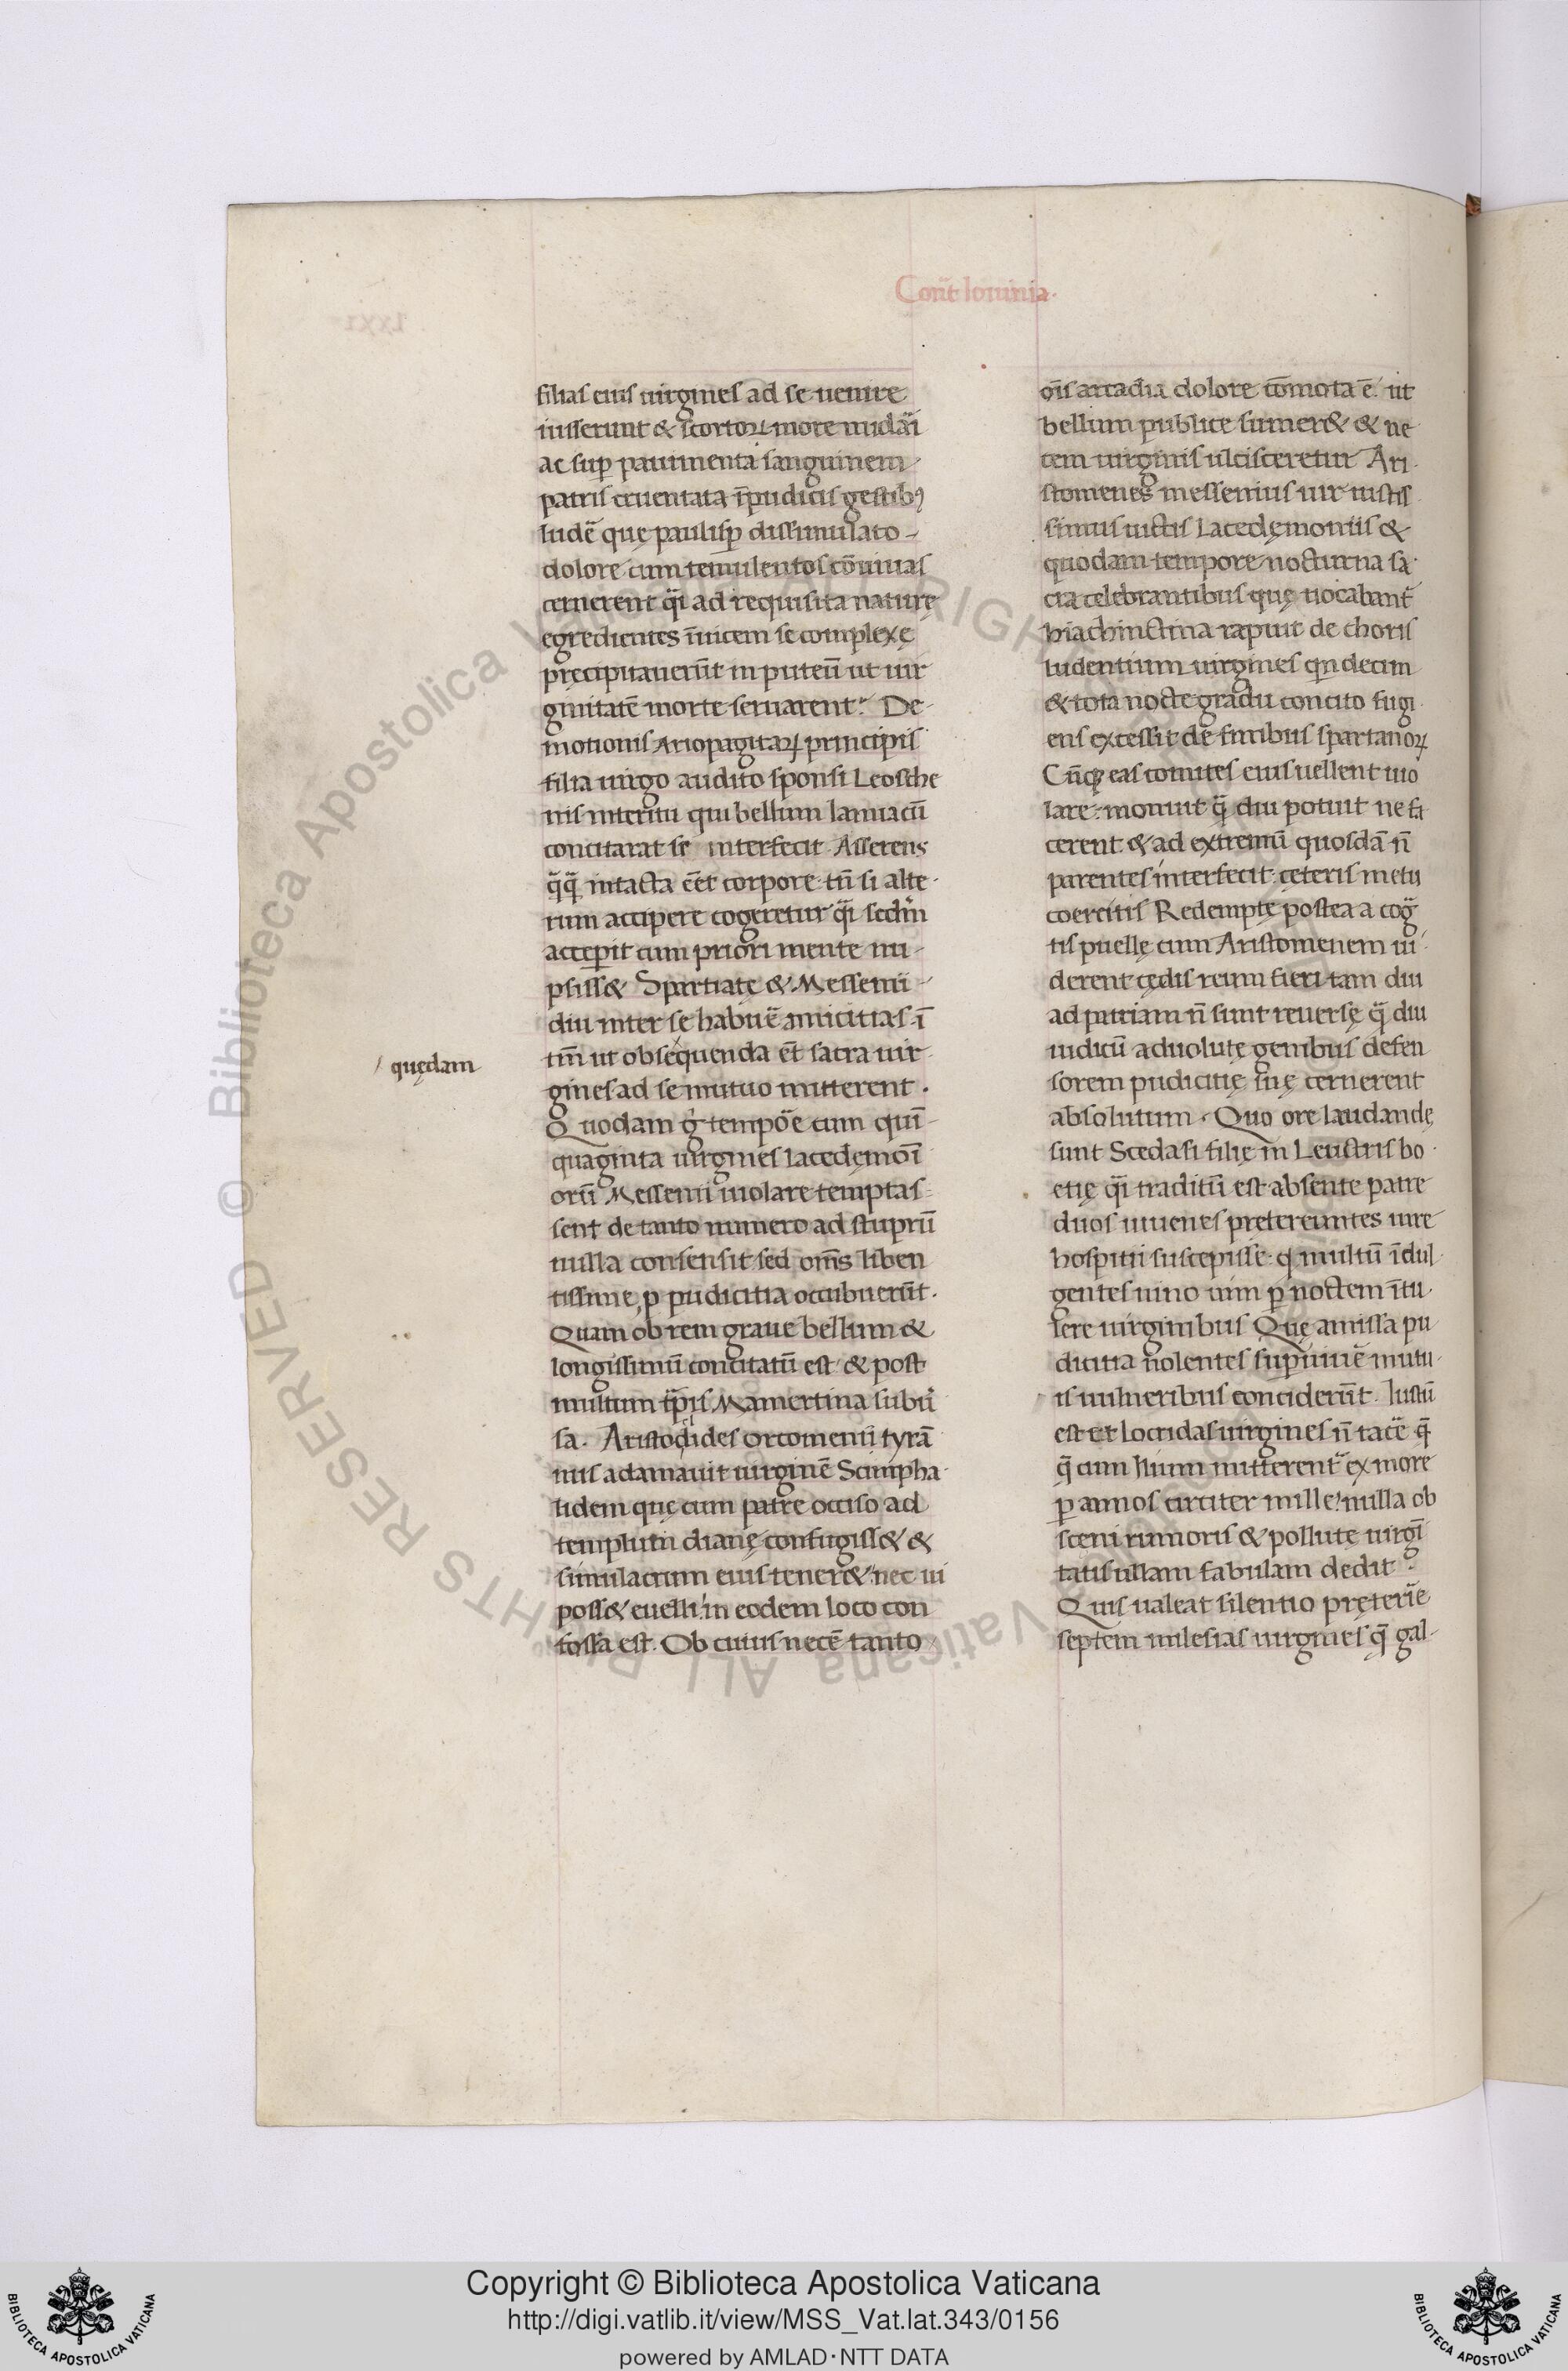 Con̄t Iouinia
filias eius uirgines ad se uenire
iusserunt & scortoꝝ more nudāi
ac suꝑ pauimenta sanguinem
patris cruentata īpudicis gestibꝰ
ludē quę paulisꝑ dissimulato
dolore cum temulentos cōuiuas
cernerent q̄i ad requisita naturę
egredientes īuicem se complexę
pręcipitauerūt in puteū ut uir
ginitatē morte seruarent. De
motionis Ariopagitaꝝ principis
filia uirgo audito sponsi Leosthe
nis interitu qui bellum lamiacū
concitarat se interfecit. Asserens
q̄q̄ intacta eēt corpore tn̄ si alte
rum accipere cogeretur q̄i secdm
acceꝑit cum priori mente nu
psiss& Spartiatę & Messenii
diu inter se habuē amicitias ī
tm̄ ut ob sequenda et̄ sacra uir
/ quędam
gines ad se mutuo mitterent.
Quodam g̊ tempoē cum quī
quaginta uirgines lacedęmoī
orū Messenii uiolare temptas
sent de tanto numero ad stuprū
nulla consensit sed om̄s liben
tissime ꝓ pudicitia occubuerūt.
Quam ob rem graue bellum &
longissimū concitatū est & post
multum tp̄is Mamertina subū
sa. Aristoclides orcomenii tyrā
nus adamauit uirginē Scimpha
lidem quę cum patre occiso ad
templum dianę confugiss& &
simulacrum eius tener& nec ui
poss& euelli in eodem loco con
fossa est. Ob cuius necē tanto
oīs arcadia dolore cōmota ē ut
bellum publice sumer& & ne
cem uirginis ulcisceretur Ari
stomenes messenius uir iustis
simus uictis Lacedęmoniis &
quodam tempore nocturna sa
cra celebrantibus quę uocabant̄
hiachinctina rapuit de choris
ludentium uirgines qn decim
& tota nocte gradu concito fugi
ens excessit de finibus spartanoꝝ
Cūq; eas comites eius uellent uio
lare: monuit q̄ diu potuit ne fa
cerent & ad extremū quosdā n̄
parentes interfecit ceteris metu
coercitis Redemptę postea a coḡ
tis puellę cum Aristomenem ui
derent cędis reum fieri tam diu
ad patriam n̄ sunt reuersę q̄ diu
iudicū aduolutę genibus defen
sorem pudicitię suę cernerent
absolutum. Quo ore laudandę
sunt Scedasi filię in Leuctris bo
etię q̄i traditū est absente patre
duos iuuenes pretereuntes iure
hospitii suscepisse q multū īdul
gentes uino uim ꝑ noctem ītu
lere uirginibus Quę amissa pu
dicitia nolentes suꝑuiuē mutu
is uulneribus conciderūt. Iustū
est et Locridas uirgines n̄ tacē q̄
q̄ cum Ilium mitterent ex more
ꝑ annos circiter mille nulla ob
sceni rumoris & pollutę uirgī
tatis ullam fabulam dedit.
Quis ualeat silentio pręteriē
septem milesias uirgines q̄ gal
Copyright © Biblioteca Apostolica Vaticana
http://digi.vatlib.it/view/MSS_Vat.lat.343/0156
powered by AMLAD·NTT DATA
BIBLIOTECA APOSTOLICA VATICANA
BIBLIOTECA APOSTOLICA VATICANA
© Biblioteca Apostolica Vaticana ALL RIGHTS RESERVED